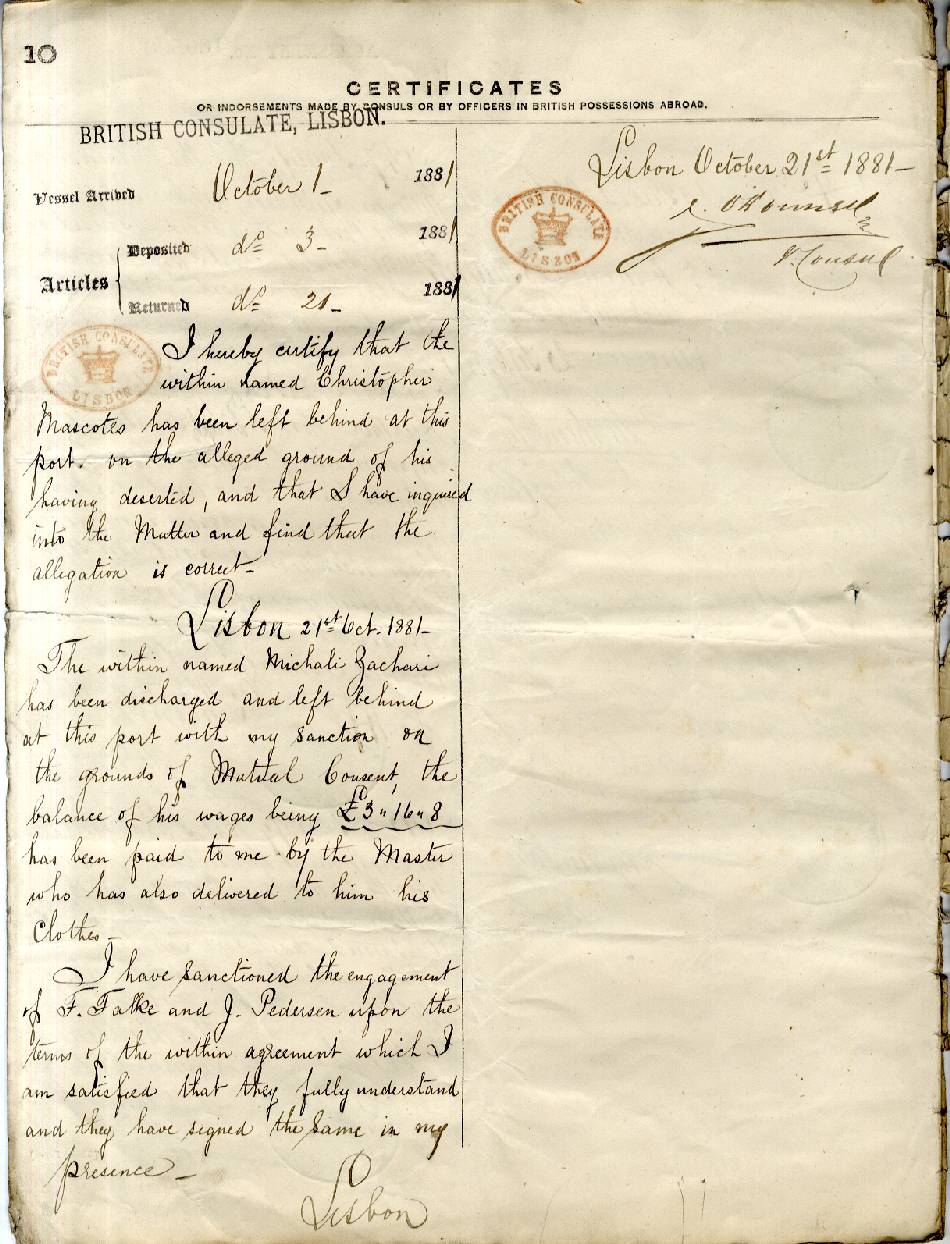 10
CERTIFICATES
OR INDORSEMENTS MADE BY CONSULS OR BY OFFICERS IN BRITISH POSSESSIONS ABROAD.
BRITISH CONSULATE, LISBON.
Vessel Arrived October 1_ 1881
Articles
Deposited do 3_ 1881
Returned do 21_ 1881
BRITISH CONSULATE
LISBON
I hereby certify that the
within named Christopher
Mascotes has been left behind at this
port. on the alleged ground of his
having deserted, and that I have inquired
into the Matter and find that the
allegation is correct_
Lisbon 21st Oct. 1881_
The within named Michali Zachari
has been discharged and left behind
at this port with my sanction on
the grounds of Mutual Consent, the
balance of his wages being £3"16"8
has been paid to me by the Master
who has also delivered to him his
Clothes_
I have sanctioned the engagement
of F. Falke and J. Pedersen upon the
terms of the within agreement which I
am satisfied that they fully understand
and they have signed the same in my
presence_
Lisbon
Lisbon October 21st 1881_
BRITISH CONSULATE
LISBON
V. Consul